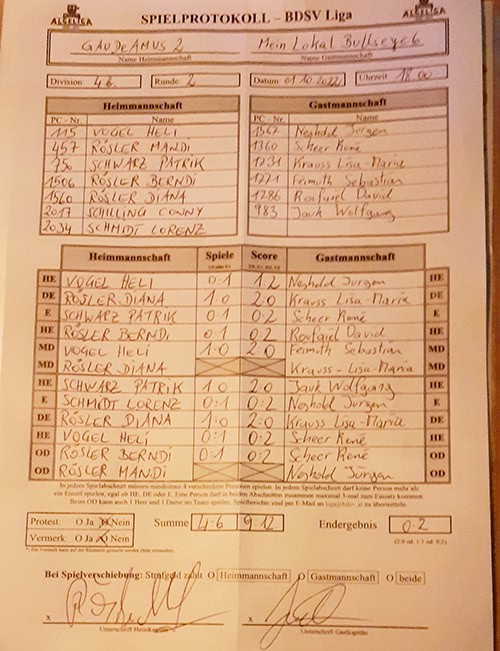 ALSELIGA SPIELPROTOKOLL – BDSV Liga ALSELIGA
GAUDEAMUS 2 Mein Lokal Bullseye 6
Name Heimmannschaft Name Gastmannschaft
Division: 4 b Runde: 2 Datum 01.10.2022 Uhrzeit 18.00
Heimmannschaft Gastmannschaft
PC - Nr. Name PC - Nr. Name
115 VOGEL HELI 1567 Neshold Jürgen
457 RÖSLER MANDI 1360 Scheer René
750 SCHWARZ PATRIK 1231 Krauss Lisa-Maria
1506 RÖSLER BERNDI 1271 Feimuth Sebastian
1560 RÖSLER DIANA 1286 David
2017 SCHILLING CONNY 983 Jauk Wolfgang
2034 SCHMIDT LORENZ
Heimmannschaft Spiele Score Gastmannschaft
HE VOGEL HELI 0:1 1:2 Neshold Jürgen HE
DE RÖSLER DIANA 1:0 2:0 Krauss Lisa-Maria DE
E SCHWARZ PATRIK 0:1 0:2 Scheer René E
HE RÖSLER BERNDI 0:1 0:2 David HE
MD VOGEL HELI 1:0 2:0 Feimuth Sebastian MD
MD RÖSLER DIANA Krauss - Lisa-Maria MD
HE SCHWARZ PATRIK 1:0 2:0 Jauk Wolfgang HE
E SCHMIDT LORENZ 0:1 0:2 Neshold Jürgen E
DE RÖSLER DIANA 1:0 2:0 Krauss Lisa-Maria DE
HE VOGEL HELI 0:1 0:2 Scheer René HE
OD RÖSLER BERNDI 0:1 0:2 Scheer René OD
OD RÖSLER MANDI Neshold Jürgen OD
In jedem Spielabschnitt müssen mindestens 4 verschiedene Personen spielen. In jedem Spielabschnitt darf keine Person mehr als
ein Einzel spielen, egal ob HE, DE oder E. Eine Person darf in beiden Abschnitten zusammen maximal 3-mal zum Einsatz kommen.
Beim OD kann auch 1 Herr und 1 Dame im Team spielen. Spielberichte sind per E-Mail an zu übermitteln.
Protest: O Ja O Nein Summe 4-6 9:12 Endergebnis 0:2
Vermerk: O Ja O Nein (2:0 od. 1:1 od. 0:2)
Bei Spielverschiebung: Strafgeld zahlt O Heimmannschaft O Gastmannschaft O beide
x x
Unterschrift Heimkapitän Unterschrift Gastkapitän